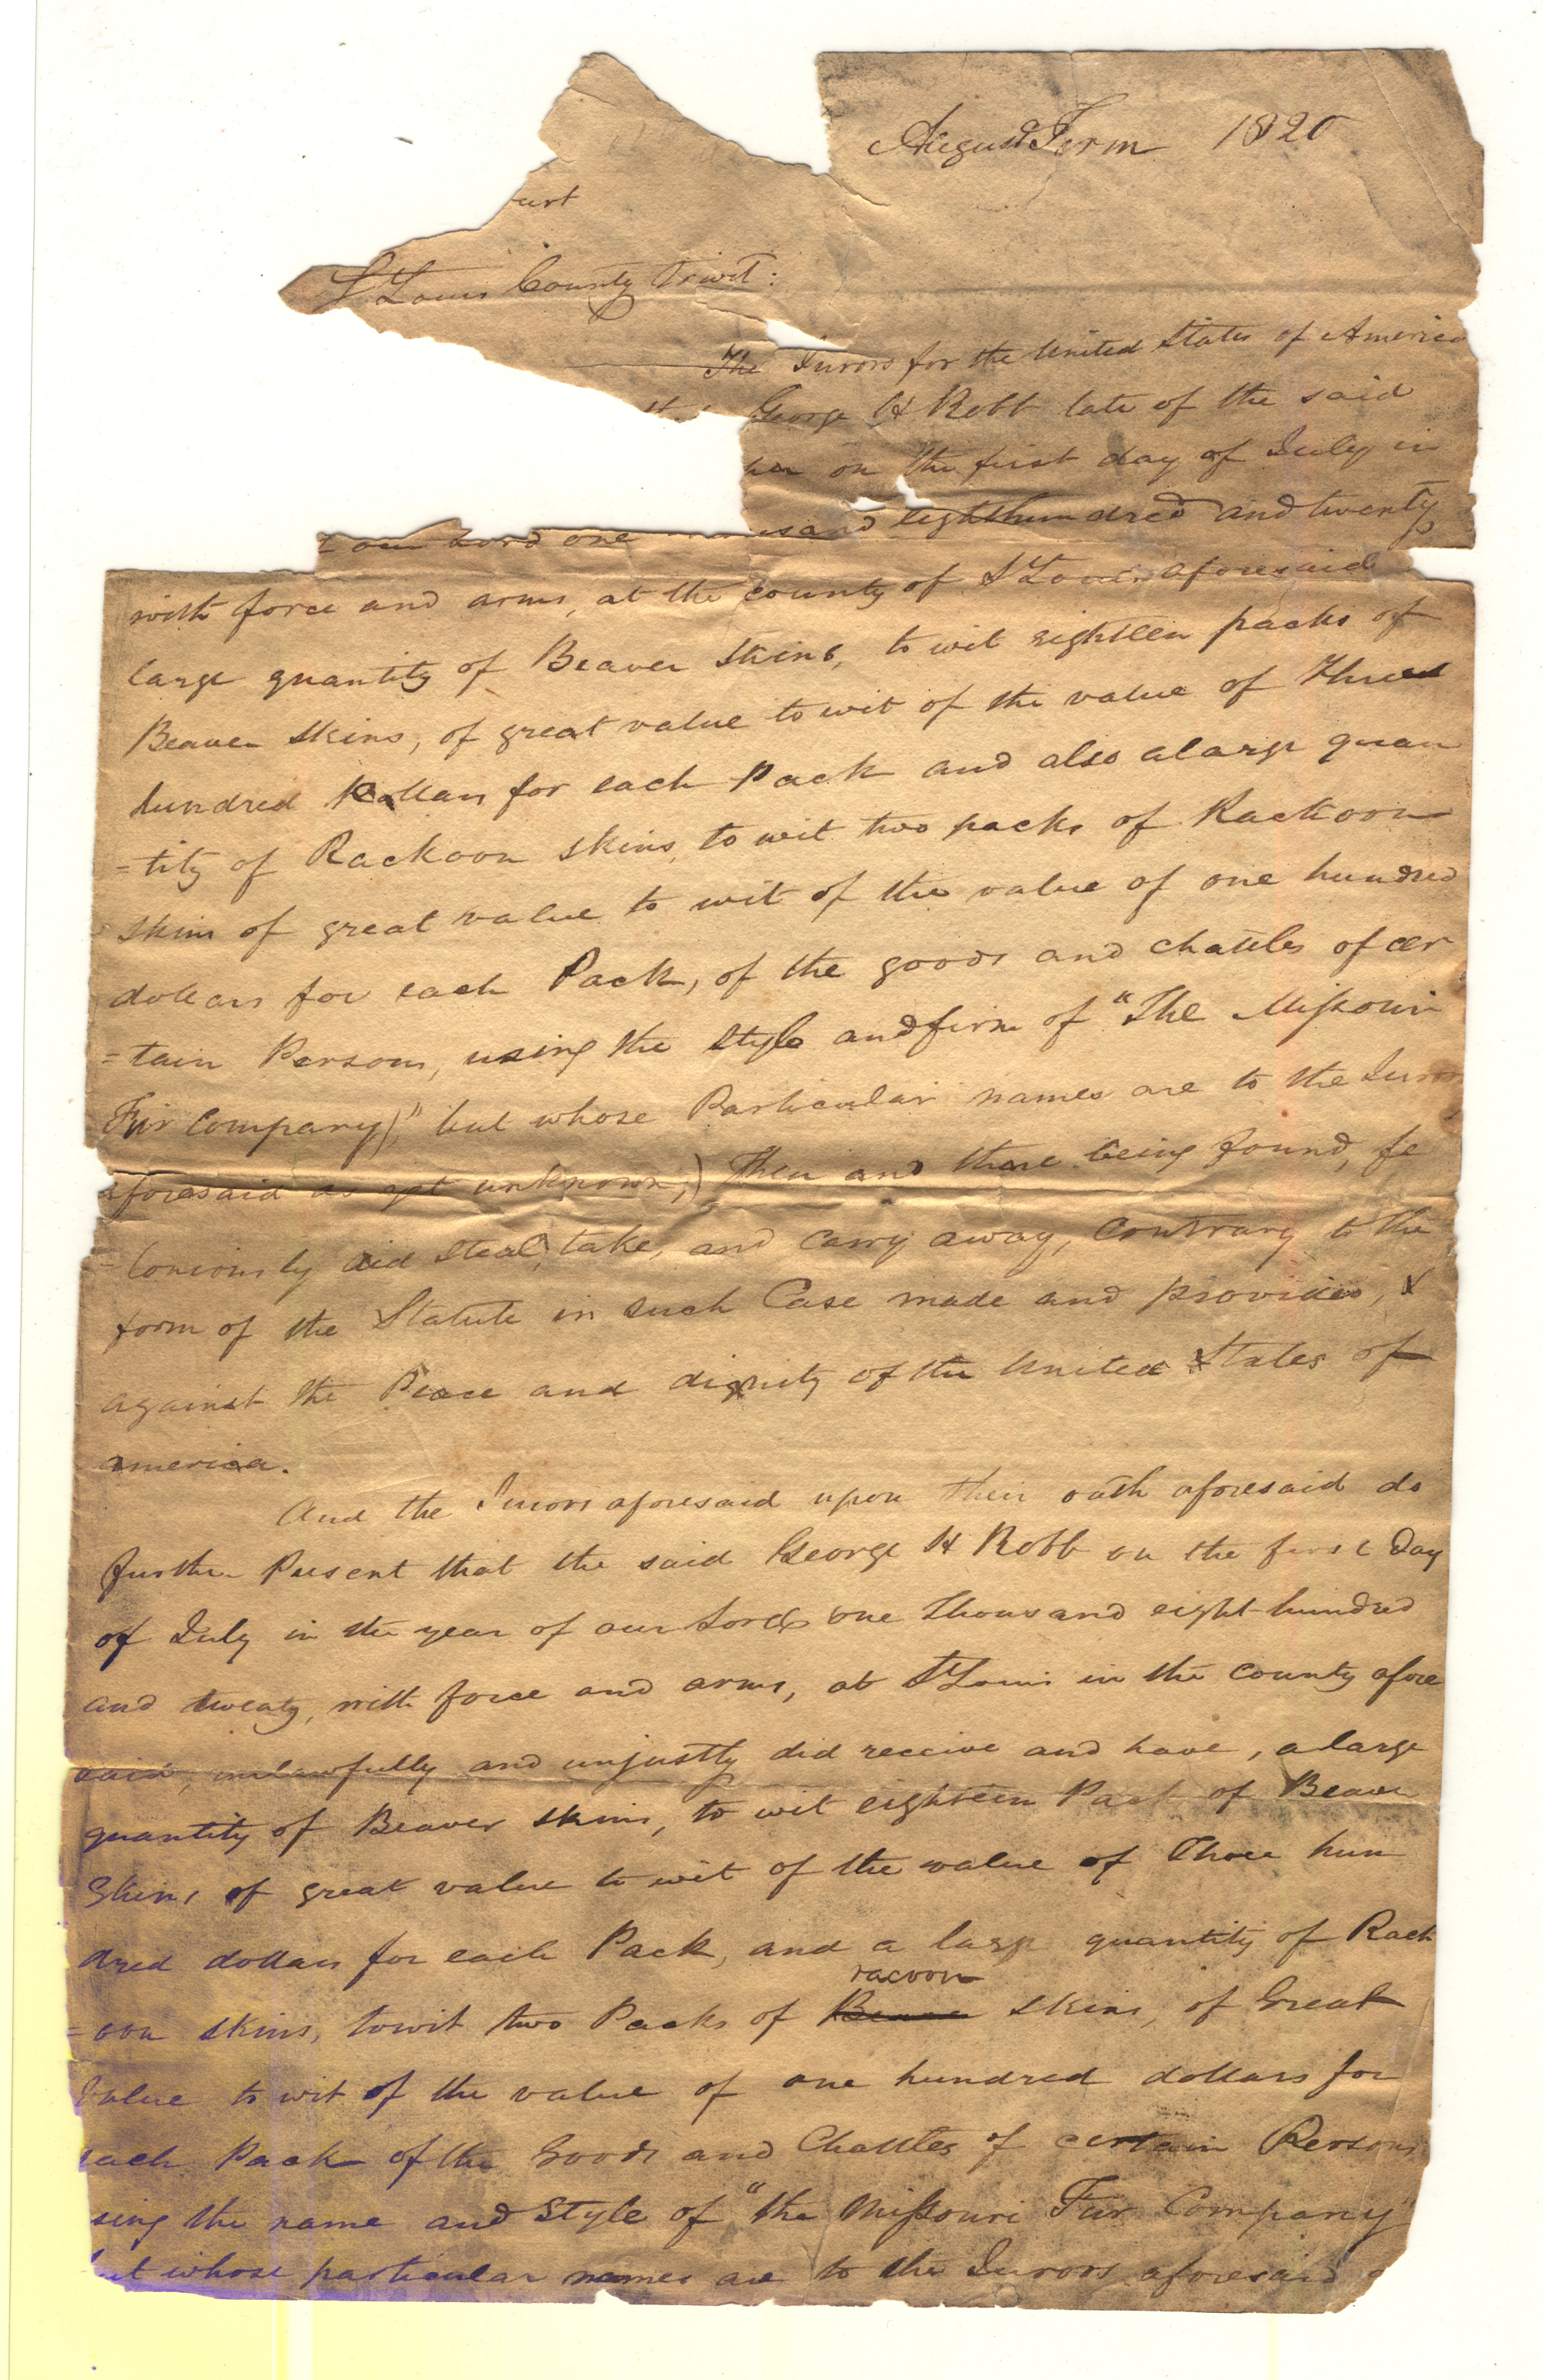 August Term 1820
urt
St Louis County Towit:
The Jurors for the United States of America
that George H Robb late of the said
on the first day of July in
our Lord one thousand eighthundred and twenty
with force and arms, at the county of St Louis aforesaid
large quantity of Beaver Skins, to wit eighteen packs of
Beaver Skins, of great value to wit of the value of Three
hundred Dollars for each Pack and also a large quan
=tity of Rackoon skins, to wit two packs of Rackoon
skins of great value to wit of the value of one hundred
dollars for each Pack, of the goods and chattles of cer
=tain Persons, using the Style and firm of "The Missouri
Fur Company)," but whose Particular names are to the Jurors
aforesaid as yet unknown,) Then and there being found, fe
=loniously did Steal, take, and Carry away, Contrary to the
form of the Statute in such Case made and provided, &
against the Peace and dignity of the United States of
america.
And the Jurors aforesaid upon their oath aforesaid do
further Present that the said George H Robb on the first Day
of July in the year of our Lord one Thousand eight-hundred
and twenty, with force and arms, at St Louis in the County afore
said, unlawfully and unjustly did receive and have, a large
quantity of Beaver skins, to wit eighteen Pack of Beaver
Skins of great value to wit of the value of Three hun
dred dollars for each Pack, and a large quantity of Rack
racoon
=oon skins, towit two Packs of Beaver skins, of Great
Value to wit of the value of one hundred dollars for
each Pack of the Goods and Chattles of certain Persons
sing the name and Style of "the Missouri Fur Company"
but whose particular names are to the Jurors aforesaid